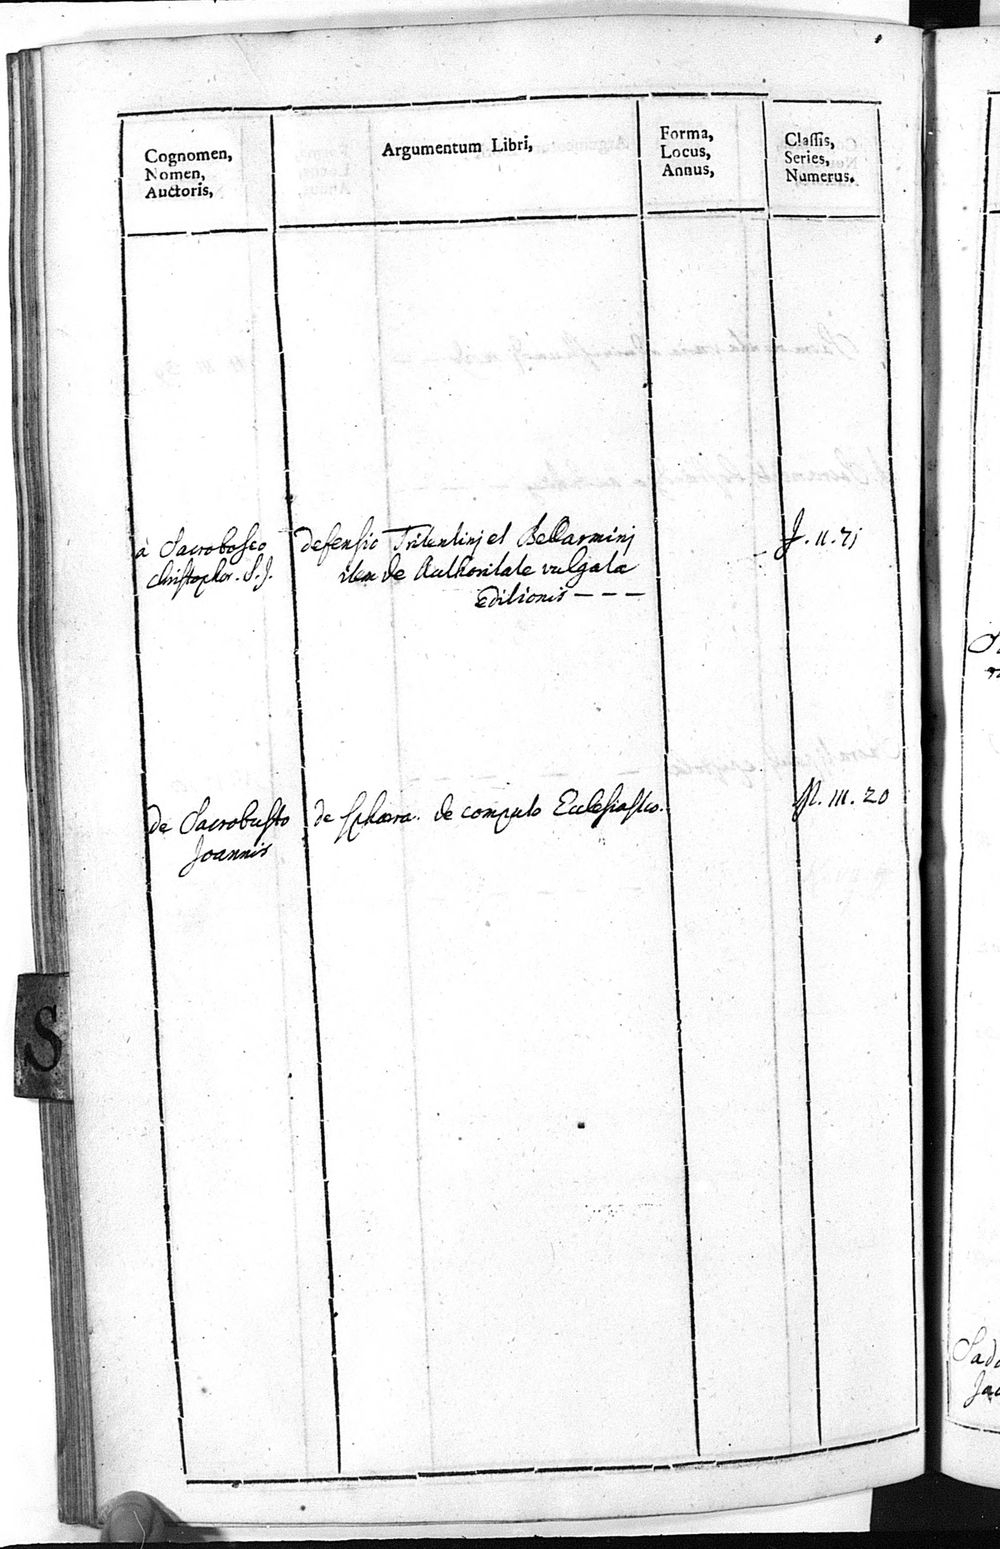 Cognomen,
Nomen,
Auctoris,
Argumentum Libri,
Forma,
Locus,
Annus,
Classis,
Series,
Numerus.
à Sacrobosco
Christophor. S. J.
defensio Tritentinj et Bellarminj
item de Authoritate vulgatæ
Editionis - - -
II. 71
de Sacrobusto
Joannis
de sphæra. de computo Ecclesiastico.
III. 20
S
Sado